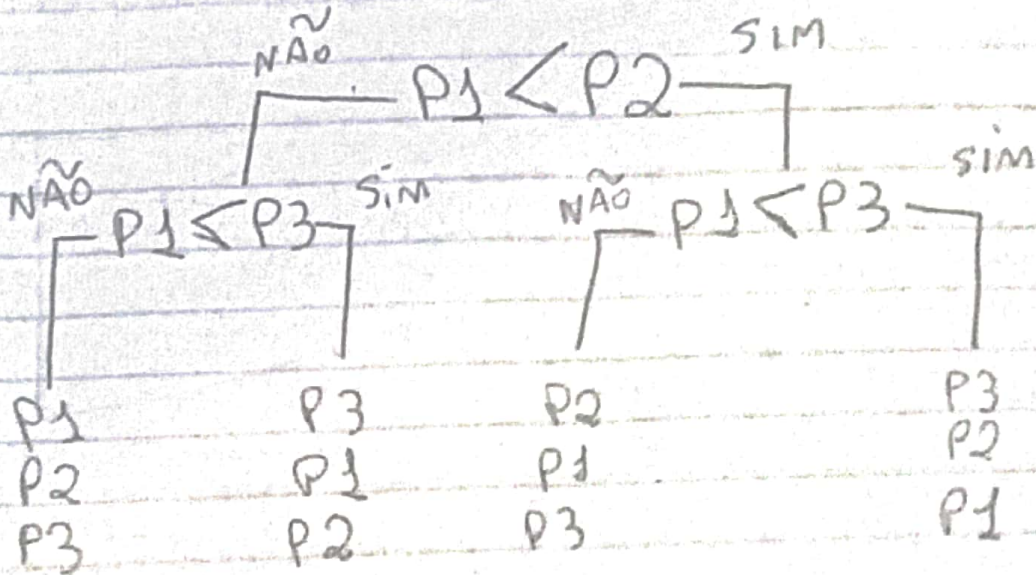 NÃO P1 < P2 SIM
NÃO P1 < P3 SIM NÃO P1 < P3 SIM
P1 P3 P2 P3
P2 P1 P1 P2
P3 P2 P3 P1